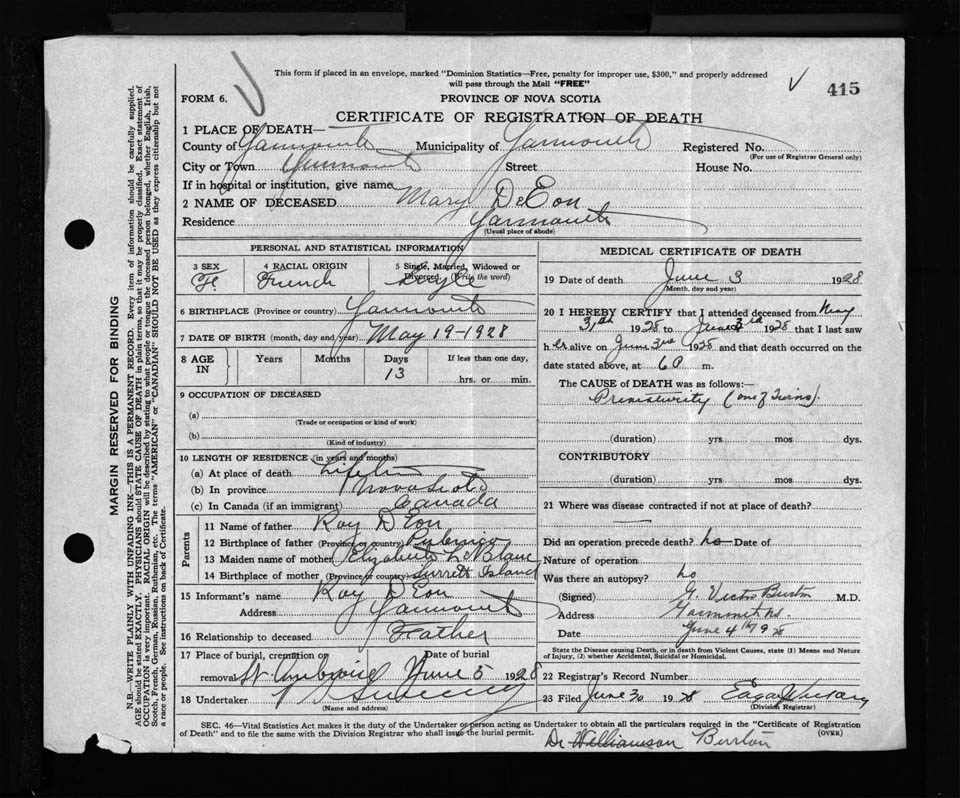 This form if placed in an envelope, marked "Dominion Statistics—Free, penalty for improper use, $300," and properly addressed
will pass through the Mail "FREE"
415
FORM 6.
PROVINCE OF NOVA SCOTIA
CERTIFICATE OF REGISTRATION OF DEATH
1 PLACE OF DEATH—
County of Yarmouth Municipality of Yarmouth Registered No.
(For use of Registrar General only)
City or Town Yarmouth Street House No.
If in hospital or institution, give name
2 NAME OF DECEASED Mary DeEon
Residence Yarmouth
(Usual place of abode)
PERSONAL AND STATISTICAL INFORMATION
3 SEX 4 RACIAL ORIGIN 5 Single, Married, Widowed or
Divorced. (Write the word)
Fe French Single
6 BIRTHPLACE (Province or country) Yarmouth
7 DATE OF BIRTH (month, day and year) May 19-1928
8 AGE IN Years Months Days If less than one day,
13 hrs. or min.
9 OCCUPATION OF DECEASED
(a)
(Trade or occupation or kind of work)
(b)
(Kind of industry)
10 LENGTH OF RESIDENCE (in years and months)
(a) At place of death Life
(b) In province Nova Scotia
(c) In Canada (if an immigrant) Canada
Parents
11 Name of father Roy D'Eon
12 Birthplace of father (Province or country) Pubnico
13 Maiden name of mother Elizabeth LeBlanc
14 Birthplace of mother (Province or country) Surrett Island
15 Informant's name Roy D'Eon
Address Yarmouth
16 Relationship to deceased Father
17 Place of burial, cremation or Date of burial
removal St Ambroise June 5 1928
18 Undertaker Sweeney
(Name and address)
MEDICAL CERTIFICATE OF DEATH
19 Date of death June 3 1928
(Month, day and year)
20 I HEREBY CERTIFY that I attended deceased from May
31st 1928 to June 3rd 1928 that I last saw
h er alive on June 3rd 1928 and that death occurred on the
date stated above, at 6 m.
The CAUSE of DEATH was as follows:—
Prematurity (one of Twins).
(duration) yrs mos dys.
CONTRIBUTORY
(duration) yrs mos dys.
21 Where was disease contracted if not at place of death?
Did an operation precede death? no Date of
Nature of operation
Was there an autopsy? no
(Signed) G. Victor Burton M.D.
Address Yarmouth NS.
Date June 4th 1928
State the Disease causing Death, or in death from Violent Causes, state (1) Means and Nature
of Injury, (2) whether Accidental, Suicidal or Homicidal.
22 Registrar's Record Number
23 Filed June 30 1928
(Division Registrar)
SEC. 46—Vital Statistics Act makes it the duty of the Undertaker or person acting as Undertaker to obtain all the particulars required in the "Certificate of Registration
of Death" and to file the same with the Division Registrar who shall issue the burial permit. (OVER)
Dr Williamson Burton
MARGIN RESERVED FOR BINDING
N.B.—WRITE PLAINLY WITH UNFADING INK—THIS IS A PERMANENT RECORD. Every item of information should be carefully supplied.
AGE should be stated EXACTLY. PHYSICIANS should STATE CAUSE OF DEATH in plain terms, so that it may be properly classified. Exact statement of
OCCUPATION is very important. RACIAL ORIGIN will be described by stating to what people or tongue the deceased person belonged, whether English, Irish,
Scotch, French, German, Russian, Ruthenian, etc. The terms "AMERICAN" or "CANADIAN" SHOULD NOT BE USED as they express citizenship but not
a race or people. See instructions on back of Certificate.